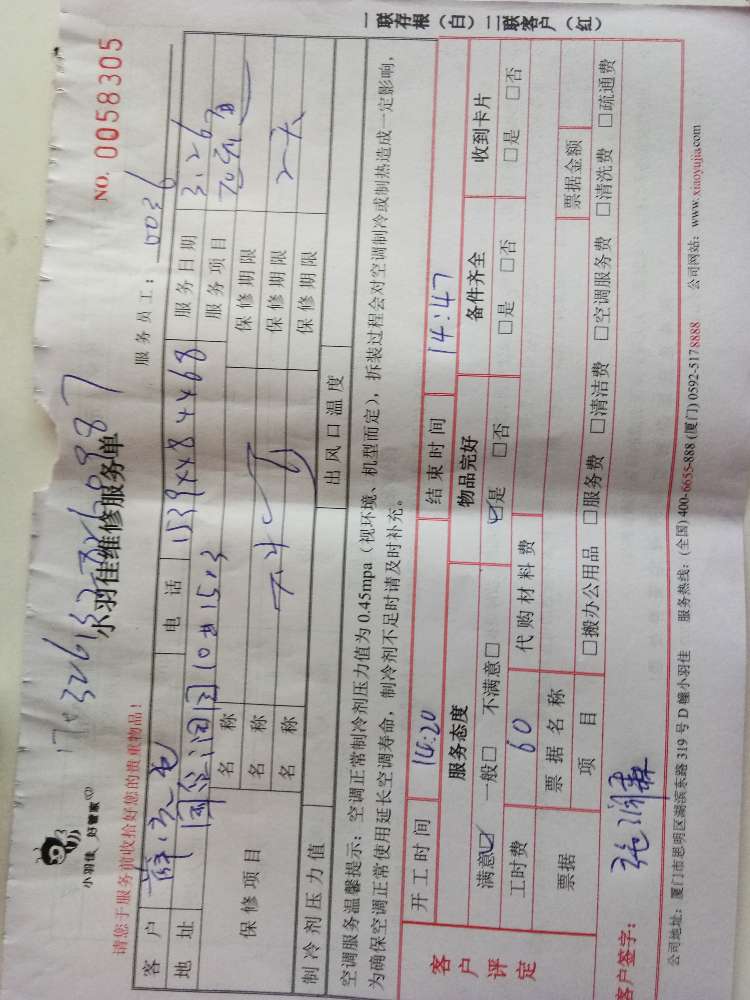 小羽佳 好管家
小羽佳维修服务单
NO. 0058305
请您于服务前收拾好您的贵重物品!
服务员工: 0036
客户 电话 服务日期 3.26
地址 服务项目
保修项目 名称 保修期限
名称 保修期限 2天
名称 保修期限
制冷剂压力值 出风口温度
空调服务温馨提示:空调正常制冷剂压力值为0.45mpa(视环境、机型而定),拆装过程会对空调制冷或制热造成一定影响,
为确保空调正常使用延长空调寿命,制冷剂不足时请及时补充。
开工时间 14:20 结束时间 14:47
客户评定 服务态度 物品完好 备件齐全 收到卡片
满意☑ 一般□ 不满意□ ☑是 □否 □是 □否 □是 □否
工时费 60 代购材料费
票据 票据名称 票据金额
项目 □搬办公用品 □服务费 □清洁费 □空调服务费 □清洗费 □疏通费
客户签字:
公司地址:厦门市思明区湖滨东路319号D幢小羽佳 服务热线:(全国)400-6655-888 (厦门)0592-5178888 公司网站:www.xiaoyujia.com
一联存根(白)二联客户(红)